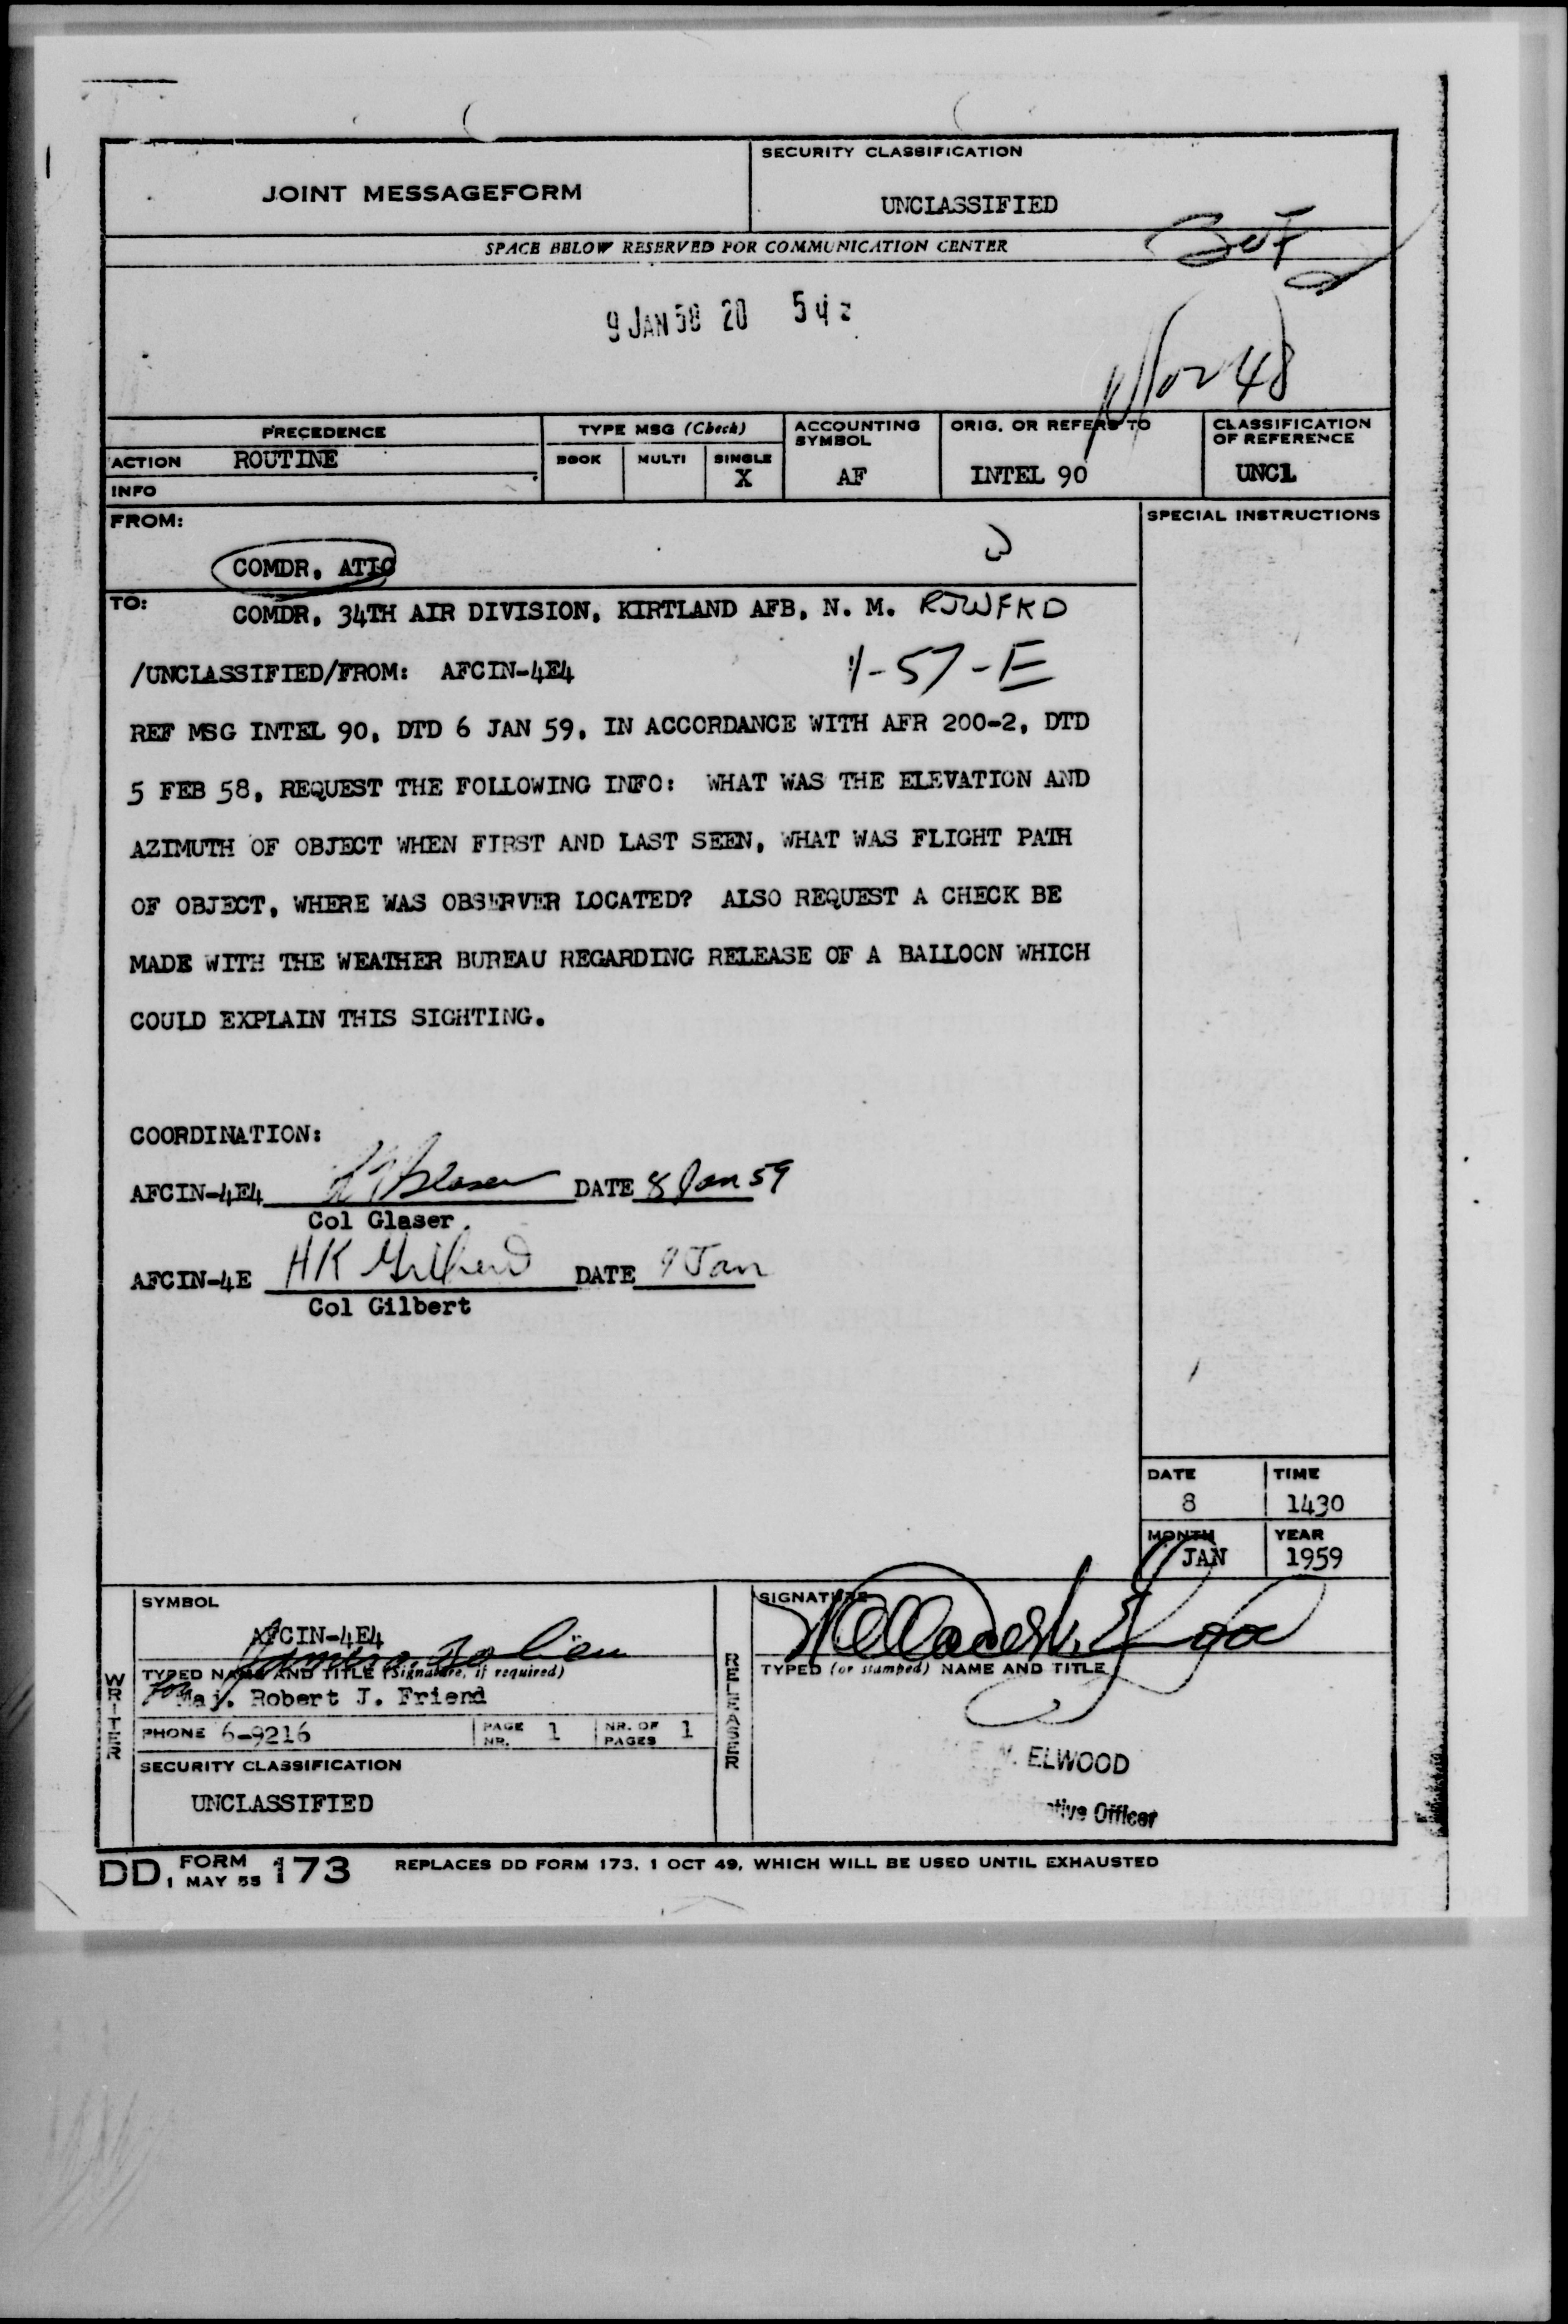 JOINT MESSAGEFORM
SECURITY CLASSIFICATION
UNCLASSIFIED
SPACE BELOW RESERVED FOR COMMUNICATION CENTER
9 JAN 58 20 54z
PRECEDENCE
ACTION ROUTINE
INFO
TYPE MSG (Check)
BOOK MULTI SINGLE
X
ACCOUNTING SYMBOL
AF
ORIG. OR REFERS TO
INTEL 90
CLASSIFICATION OF REFERENCE
UNCL
FROM:
COMDR, ATIC
SPECIAL INSTRUCTIONS
TO:
COMDR, 34TH AIR DIVISION, KIRTLAND AFB, N. M. RJWFKD
/UNCLASSIFIED/FROM: AFCIN-4E4 1-57-E
REF MSG INTEL 90, DTD 6 JAN 59, IN ACCORDANCE WITH AFR 200-2, DTD
5 FEB 58, REQUEST THE FOLLOWING INFO: WHAT WAS THE ELEVATION AND
AZIMUTH OF OBJECT WHEN FIRST AND LAST SEEN, WHAT WAS FLIGHT PATH
OF OBJECT, WHERE WAS OBSERVER LOCATED? ALSO REQUEST A CHECK BE
MADE WITH THE WEATHER BUREAU REGARDING RELEASE OF A BALLOON WHICH
COULD EXPLAIN THIS SIGHTING.
COORDINATION:
AFCIN-4E4 Glaser DATE 8 Jan 59
Col Glaser
AFCIN-4E HK Gilbert DATE 9 Jan
Col Gilbert
DATE
8
TIME
1430
MONTH
JAN
YEAR
1959
WRITER
SYMBOL
AFCIN-4E4
TYPED NAME AND TITLE (Signature, if required)
for Maj. Robert J. Friend
PHONE 6-9216
PAGE NR. 1
NR. OF PAGES 1
SECURITY CLASSIFICATION
UNCLASSIFIED
RELEASER
SIGNATURE
TYPED (or stamped) NAME AND TITLE
ELWOOD
Officer
DD FORM 1 MAY 55 173
REPLACES DD FORM 173, 1 OCT 49, WHICH WILL BE USED UNTIL EXHAUSTED